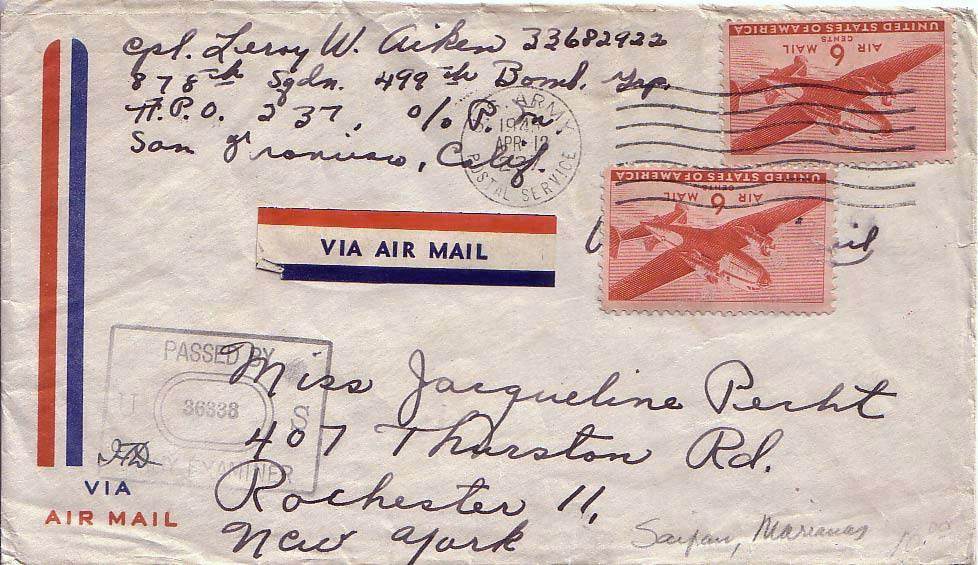 Cpl. Leroy W. Aiken 33682922
878th Sqdn. 499th Bomb. Grp.
A.P.O. 237, c/o P.M.
San Francisco, Calif.
U.S. ARMY
194
APR 12
POSTAL SERVICE
UNITED STATES OF AMERICA
6 CENTS
AIR MAIL
UNITED STATES OF AMERICA
6 CENTS
AIR MAIL
VIA AIR MAIL
PASSED BY
U 36338 S
ARMY EXAMINER
Miss Jacqueline Pecht
407 Thurston Rd.
Rochester 11,
New York
VIA
AIR MAIL
Saipan, Marianas
10.00